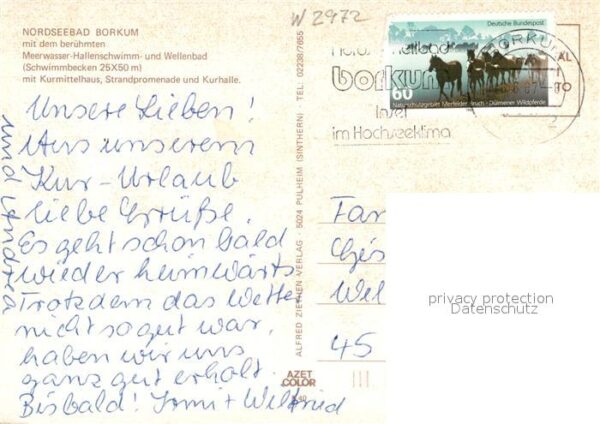 W 2972
NORDSEEBAD BORKUM
mit dem berühmten
Meerwasser-Hallenschwimm- und Wellenbad
(Schwimmbecken 25X50 m)
mit Kurmittelhaus, Strandpromenade und Kurhalle.
Unsere Lieben!
Aus unserem
Kur-Urlaub
liebe Grüße.
Es geht schon bald
wieder heimwärts
Trotzdem das Wetter
nicht so gut war,
haben wir uns
ganz gut erholt.
Bis bald! Irmi + Wilfried
und Andrea
ALFRED ZIETHEN VERLAG · 5024 PULHEIM (SINTHERN) TEL. 02238/7055
AZET
COLOR
Deutsche Bundespost
60
Naturschutzgebiet Merfelder Bruch · Dülmener Wildpferde
heilbad
borkum
Insel
im Hochseeklima
BORKUM
Wel
45
privacy protection
Datenschutz